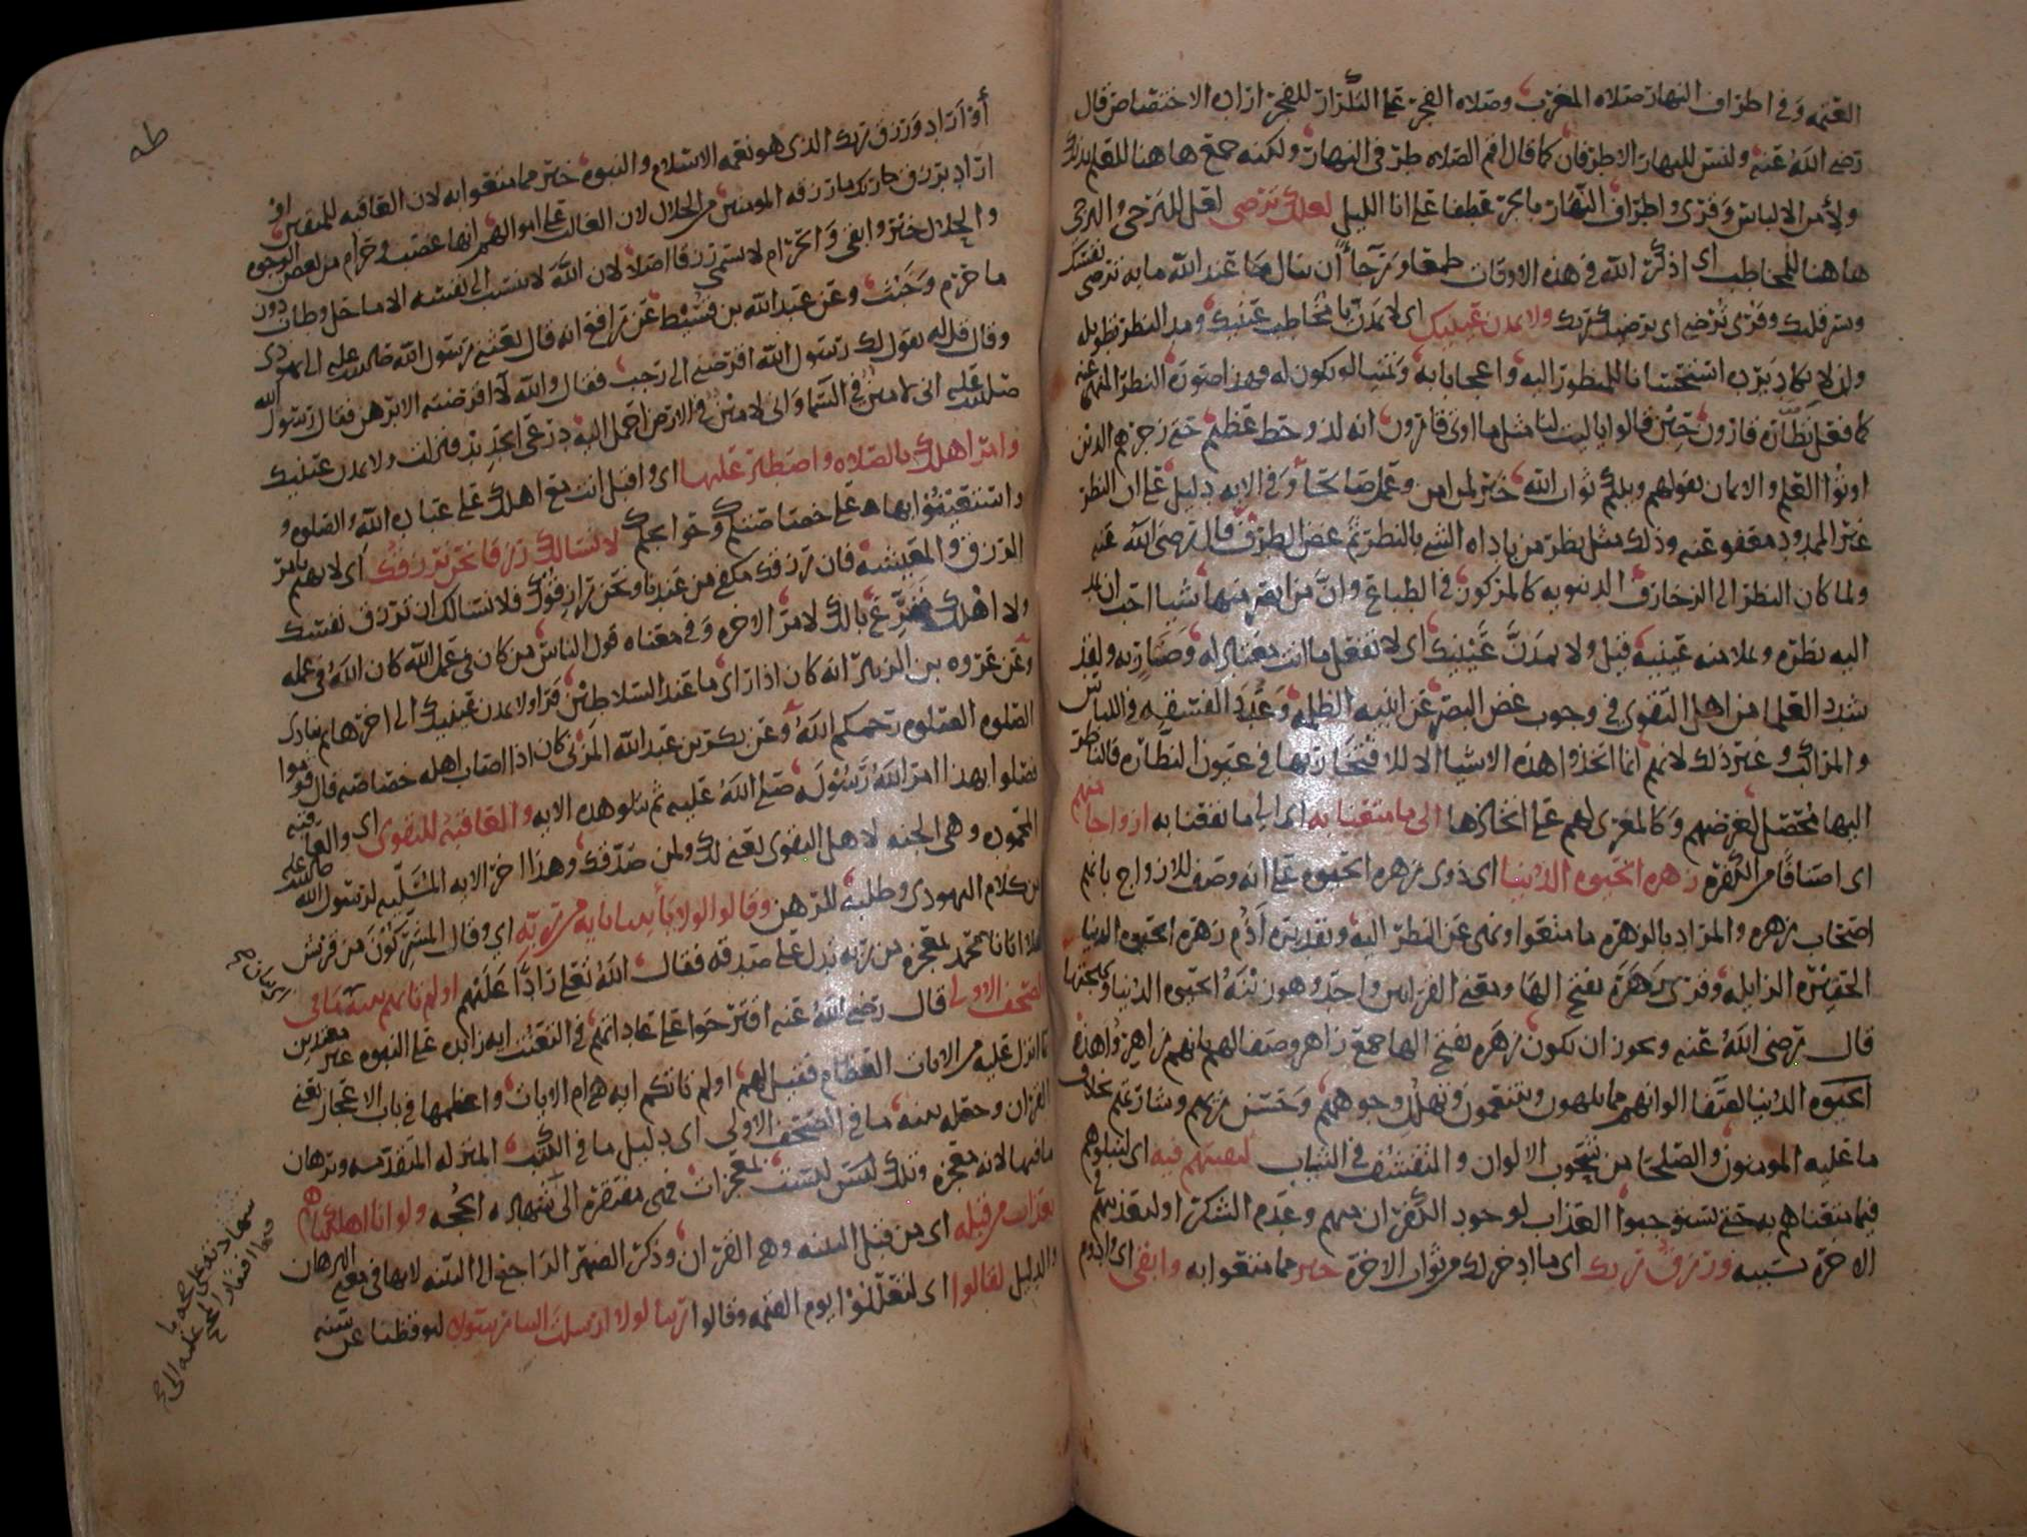 العتمه وفى اطراف النهار صلاه المغرب وصلاه الفجر على التكرار للفجر اراده الاختصاص قال
رضى الله عنه وليس للنهار الا طرفان كما قال اقم الصلاه طرفى النهار ولكنه جمع هاهنا للعلم بذلك
ولأمن الالباس وقرى واطراف النهار بالجر عطفا على انا الليل لعلك ترضى لعل للترجى والترجى
هاهنا للمخاطب اى اذكر الله فى هذه الاوقات طمعا ورجاً ان تنال بها عند الله ما به ترضى نفسك
ويسر قلبك وقرى تُرضى اى يرضيك ربك ولا تمدن عينيك اى لا تمدن يا مخاطب عينيك ومد النظر تطويله
وان لا يكاد يرده استحسانا للمنظور اليه واعجابا به وتمنيا لو يكون له وهذا صوره النظر المنهى عنه
كما فعل نظّاره قارون حين قالوا يا ليت لنا مثل ما اوتى قارون انه لذو حظ عظيم حتى زجرهم الذين
اوتوا العلم والايمان بقولهم ويلكم ثواب الله خير لمن امن وعمل صالحاً وفى الايه دليل على ان النظر
غير الممدود معفو عنه وذلك مثل نظر من باداه الشى بالنظر ثم غض الطرف قال رضى الله عنه
ولما كان النظر الى الزخارف الدنيويه كالمركوز فى الطباع وانّ من ابصر منها شيا احب ان يمد
اليه نظره ويملا منه عينيه قيل ولا تمدنّ عينيك اى لا تفعل ما انت معتاد له وضارٍ به ولقد
شدد العلما من اهل التقوى فى وجوب غض البصر عن ابنيه الظلمه وعُدَد الفسقه فى اللباس
والمراكب وغير ذلك لانهم انما اتخذوا هذه الاشيا الا للافتخار بها فى عيون النظاره فالناظر
اليها محصّل لغرضهم وكالمغرى لهم على اتخاذها الى ما متعنا به اى الى ما نفعنا به ازواجا منهم
اى اصنافاً من الكفره زهره الحيوه الدنيا اى ذوى زهره الحيوه على انه وصف للازواج بانهم
اصحاب زهره والمراد بالزهره ما متعوا ونهى عن النظر اليه وتقديره أذُم زهره الحيوه الدنيا
الحقيره الزايله وقرى زَهَرَة بفتح الها ومعنى القراتين واحد وهو زينة الحيوه الدنيا وبهجتها
قال رضى الله عنه ويجوز ان يكون زَهَره بفتح الها جمع زاهر وصفا لهم بانهم زاهروا هذه
الحيوه الدنيا لصفا الوانهم مما يلهون ويتنعمون وتهلل وجوههم وحسن زيهم وشارتهم بخلاف
ما عليه المومنون والصلحا من شحوب الالوان والتقشف فى الثياب لنفتنهم فيه اى لنبلوهم
فيما متعناهم به حتى يستوجبوا العذاب لوجود الكفران منهم وعدم الشكر او لنعذبهم فى
الاخرة بسببه ورزق ربك اى ما ادخر لك من ثواب الاخرة خير مما متعوا به وابقى اى ادوم
طه
أو اراد ورزق ربك الذى هو نعمه الاسلام والنبوه خير مما متعوا به لان العاقبه للمتقين او
اراد برزق ربك ما رزقه المومنين من الحلال لان الغالب على اموالهم انها غصب وحرام من بعض الوجوه
والحلال خير وابقى والحرام لا يسمى رزقا اصلا لان الله لا ينسب الى نفسه الا ما حل وطاب دون
ما حرم وخَبُث وعن عبد الله بن قسيط عن رافع انه قال بعثنى رسول الله صلى الله عليه الى يهودى
وقال قل له يقول لك رسول الله اقرضنى الى رجب فقال والله لا اقرضته الا برهن فقال رسول الله
صلى الله عليه انى لامين فى السما وانى لامين فى الارض احمل اليه درعى الحديد فنزلت ولا تمدن عينيك
وامر اهلك بالصلاه واصطبر عليها اى واقبل انت مع اهلك على عبادة الله والصلوه و
استعينوا بها على خصاصتكم وحوائجكم لا نسالك رزقا نحن نرزقك اى لا تهتم بامر
الرزق والمعيشه فان رزقك مكفى من عندنا ونحن رازقوك فلا نسالك ان ترزق نفسك
ولا اهلك ففرّغ بالك لامر الاخره وفى معناه قول الناس من كان فى عمل الله كان الله فى عمله
وعن عروه بن الزبير انه كان اذا راى ما عند السلاطين قرا ولا تمدن عينيك الى اخرها ثم ينادى
الصلوه الصلوه رحمكم الله وعن بكر بن عبد الله المزنى كان اذا اصاب اهله خصاصه قال قوموا
فصلوا بهذا امر الله رسوله صلى الله عليه ثم يتلو هذه الايه والعاقبة للتقوى اى والعاقبه
المحموده وهى الجنه لاهل التقوى يعنى لك ولمن صدّقك وهذا اخر الايه المسلّيه لرسول الله صلى الله عليه
من كلام اليهودى وطلبه للرهن وقالوا لولا ياتينا بايه من ربه اى وقال المشركون من قريش
هلا اتانا محمد بمعجزه من ربه تدل على صدقه فقال الله تعلى رادًّا عليهم اولم تاتهم بينه ما فى
الصحف الاولى قال رضى الله عنه اقترحوا على عادتهم فى التعنت ايه زايده على النبوه غير معتدين
بما انزل عليه من الايات العظام فقيل لهم اولم تاتكم ايه هى ام الايات واعظمها فى باب الاعجاز يعنى
القران وجعله بينه ما فى الصحف الاولى اى دليل ما فى الكتب المنزله المتقدمه وبرهان
ما فيها لانه معجزه وتلك ليس ليست بمعجزات فهى مفتقره الى شهاده الحجه ولو انا اهلكناهم
بعذاب من قبله اى من قبل البينه وهى القران وذكر الضمير الراجع الى البينه لانها فى معنى البرهان
والدليل لقالوا اى لتعللوا يوم القيمه وقالوا ربنا لولا ارسلت الينا رسولا ليوقظنا عن سنه